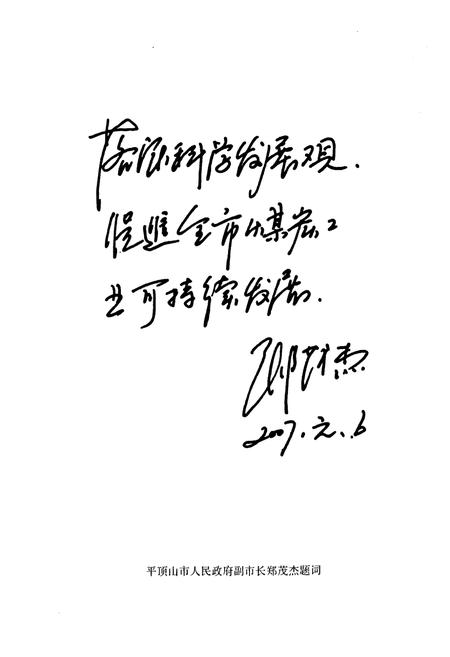 落实科学发展观.
促進全市煤炭工
业可持续发展.
郑茂杰
2007.元.6
平顶山市人民政府副市长郑茂杰题词